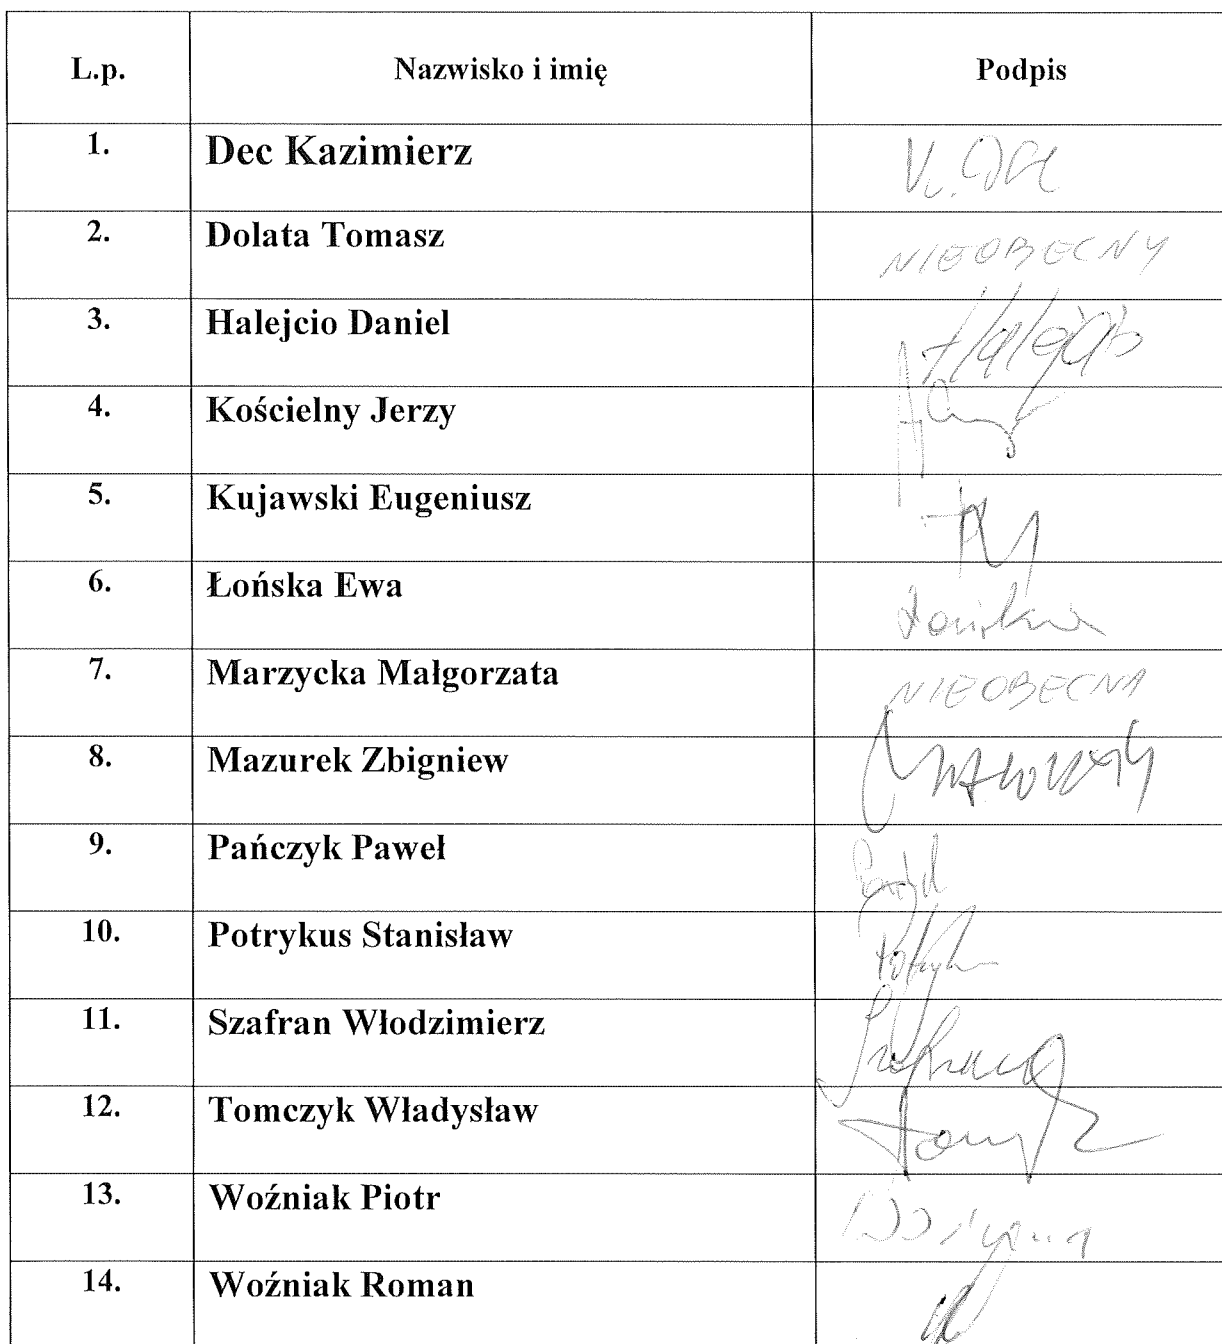 L.p. Nazwisko i imię Podpis
1. Dec Kazimierz
2. Dolata Tomasz NIEOBECNY
3. Halejcio Daniel Halejcio
4. Kościelny Jerzy
5. Kujawski Eugeniusz
6. Łońska Ewa Łońska
7. Marzycka Małgorzata NIEOBECNA
8. Mazurek Zbigniew
9. Pańczyk Paweł
10. Potrykus Stanisław
11. Szafran Włodzimierz Szafran
12. Tomczyk Władysław
13. Woźniak Piotr
14. Woźniak Roman